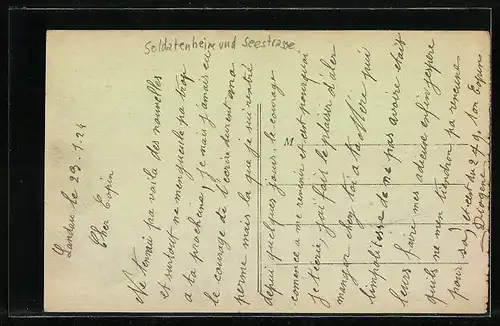 Soldatenheim und Seestrasse
Landau le 23.1.24
Cher Copin
Ne tennui pas voila des nouvelles
et surtout ne mengueule pas trop
a ta prochaine, je nais jamais eu
le courage de t'écrire durent ma
perme mais la que je suis rentré
depui quelques jours le courage
comence a me revenir et cest pourquoi
je t'écrie, jai fait le plaisir d'aler
manger chez toi a ta Mère qui
limpolitesse de ne pas avoire etait
leurs faire mes adieuse enfin jespere
quils ne men tiendron pas rencune
pour sa, et cest du 2 d g. Ton Copin
Diogène
M